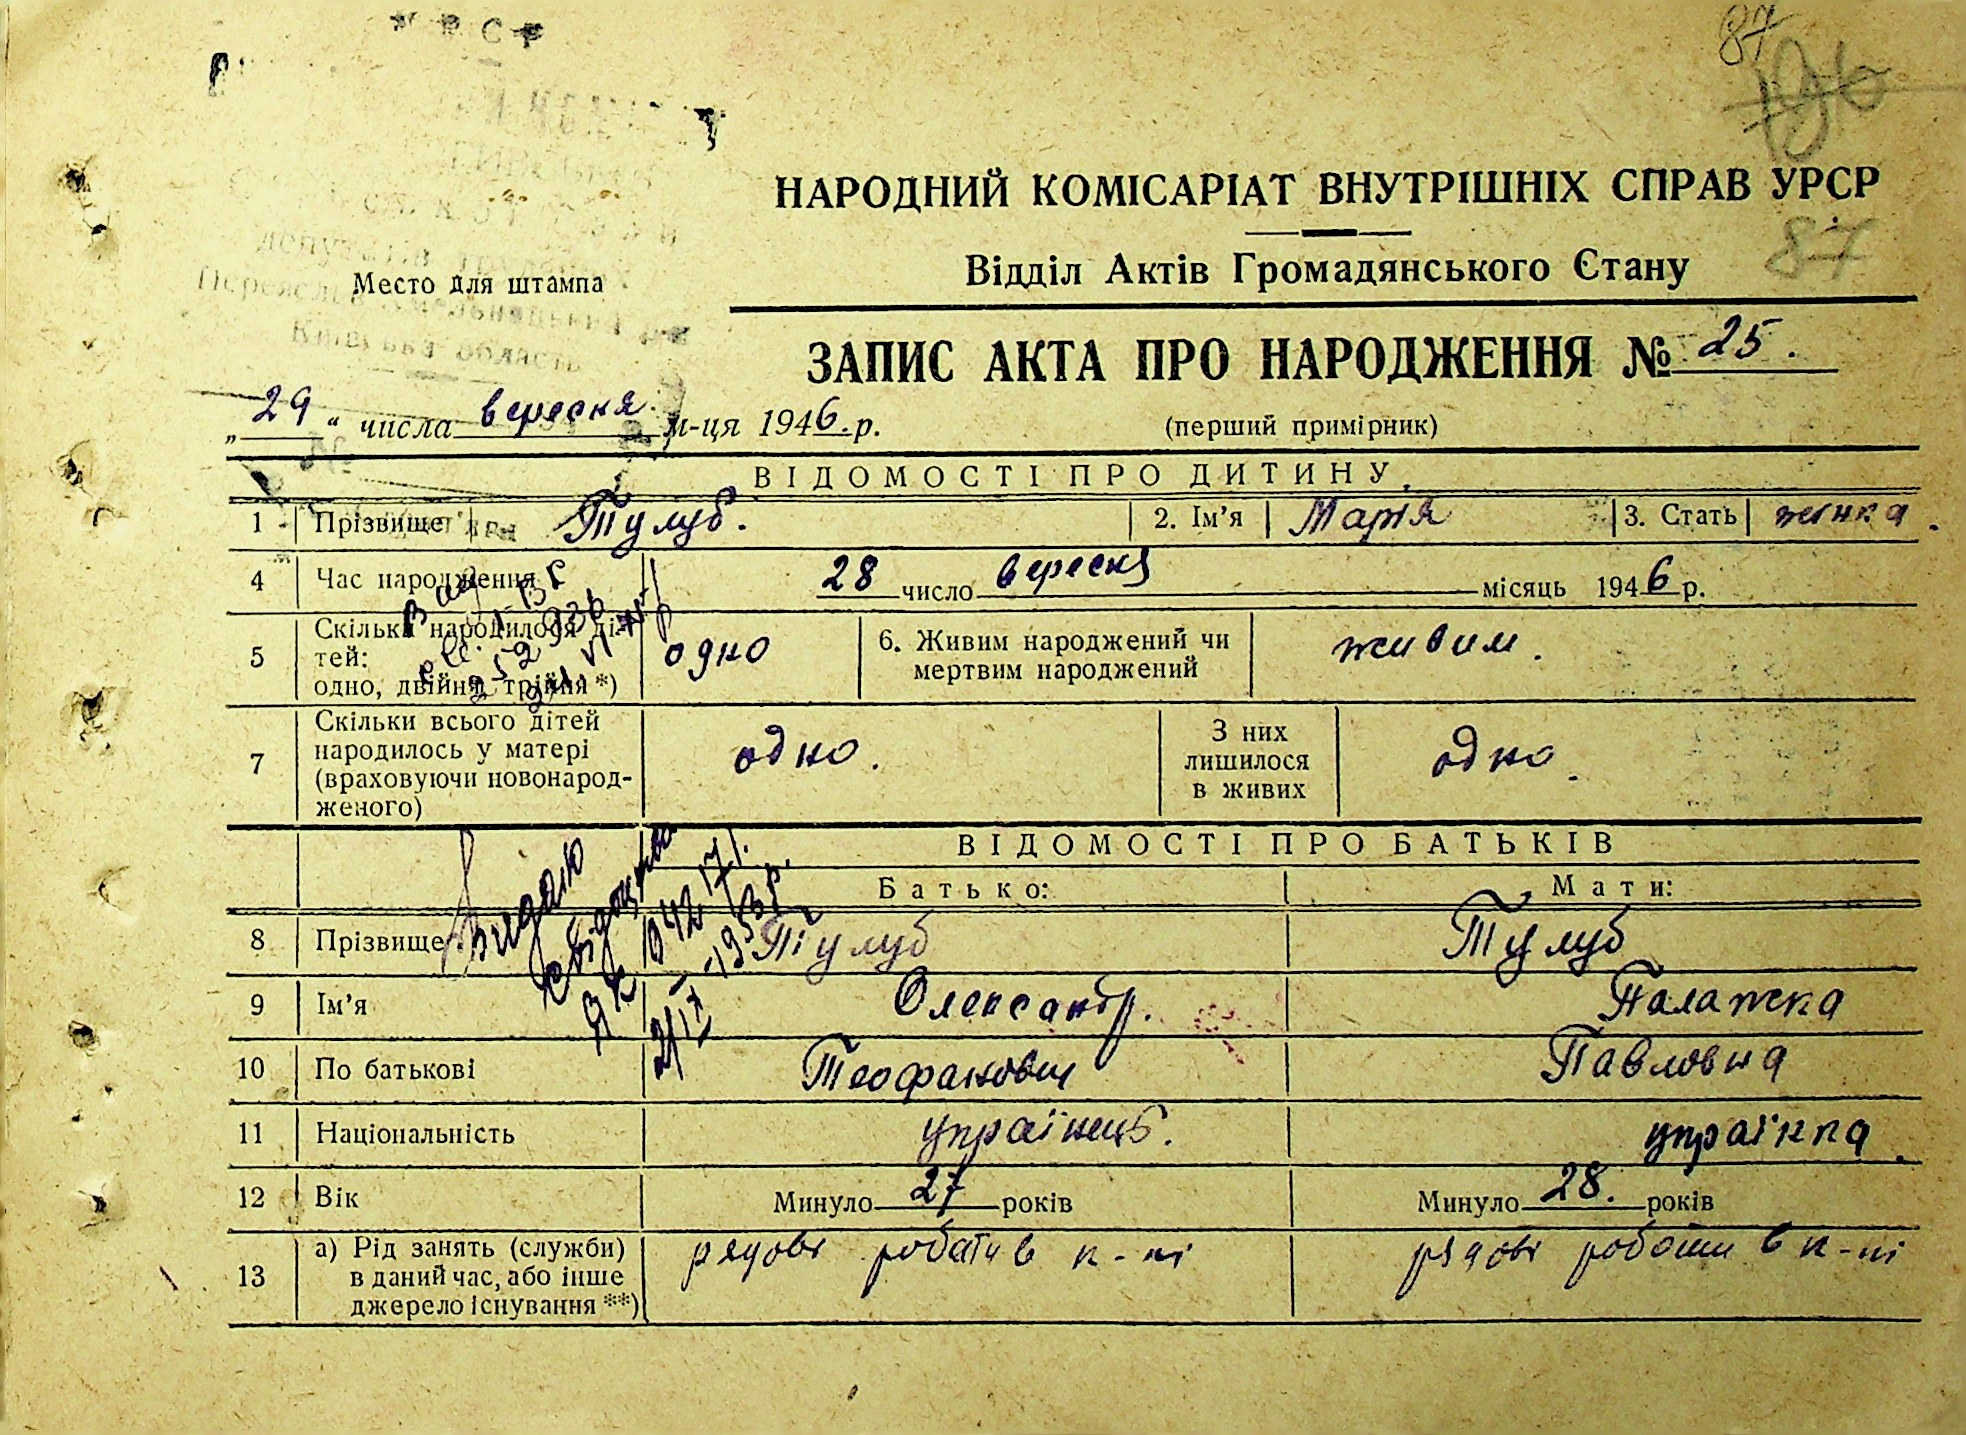 У Р С Р
87
196
НАРОДНИЙ КОМІСАРІАТ ВНУТРІШНІХ СПРАВ УРСР
87
депутатів трудящих
Відділ Актів Громадянського Стану
Место для штампа
Київська область
ЗАПИС АКТА ПРО НАРОДЖЕННЯ № 25.
„29“ числа вересня м-ця 1946. р.
(перший примірник)
ВІДОМОСТІ ПРО ДИТИНУ
1 Прізвище Тулуб. 2. Ім’я Марія 3. Стать жінка.
4 Час народження 28 число вересня місяць 1946 р.
5 Скільки народилося ді-
тей:
одно, двійня, трійня *) одно 6. Живим народжений чи
мертвим народжений живим.
7 Скільки всього дітей
народилось у матері
(враховуючи новонарод-
женого) одно. З них
лишилося
в живих одно.
ВІДОМОСТІ ПРО БАТЬКІВ
Батько: Мати:
8 Прізвище Тулуб Тулуб
9 Ім’я Олександр. Палажка
10 По батькові Теофанович Павловна
11 Національність українець. українка.
12 Вік Минуло 27 років Минуло 28. років
13 а) Рід занять (служби)
в даний час, або інше
джерело існування **) рядові роботи в к-пі рядові роботи в к-пі
Видано
свідоцтво